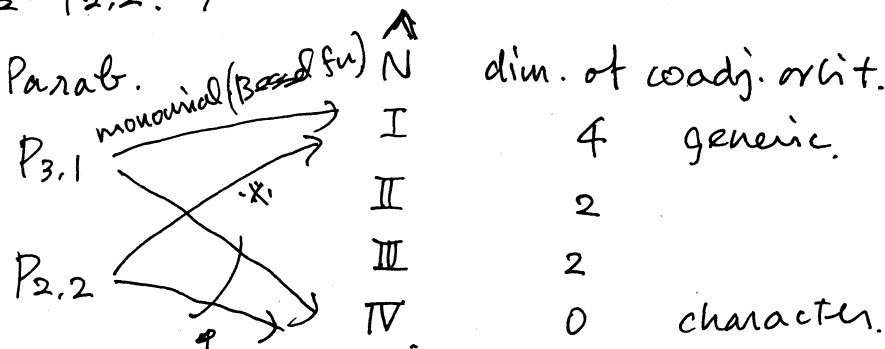 P2,2.
Parab. N̂ dim. of coadj. orbit.
monomial (Bessel fu)
P3,1 I 4 generic.
·X·
II 2
P2,2 III 2
IV 0 character.